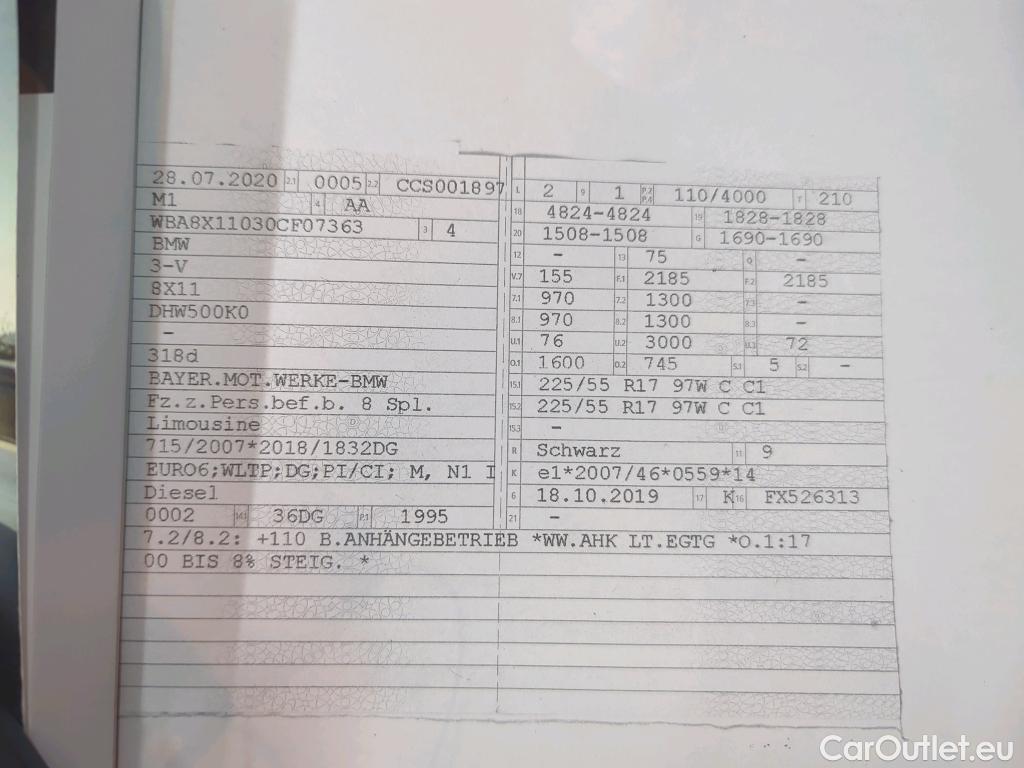 28.07.2020 2.1 0005 2.2 CCS001897 L 2 9 1 P.2 P.4 110/4000 T 210
M1 4 AA 18 4824-4824 19 1828-1828
WBA8X11030CF07363 3 4 20 1508-1508 G 1690-1690
BMW 12 - 13 75 Q -
3-V V.7 155 F.1 2185 F.2 2185
8X11 7.1 970 7.2 1300 7.3 -
DHW500K0 8.1 970 8.2 1300 8.3 -
- U.1 76 U.2 3000 U.3 72
318d O.1 1600 O.2 745 S.1 5 S.2 -
BAYER.MOT.WERKE-BMW 15.1 225/55 R17 97W C C1
Fz.z.Pers.bef.b. 8 Spl. 15.2 225/55 R17 97W C C1
Limousine 15.3 -
715/2007*2018/1832DG R Schwarz 11 9
EURO6;WLTP;DG;PI/CI; M, N1 I K e1*2007/46*0559*14
Diesel 6 18.10.2019 17 K 16 FX526313
0002 14.1 36DG P.1 1995 21 -
7.2/8.2: +110 B.ANHÄNGEBETRIEB *WW.AHK LT.EGTG *O.1:17
00 BIS 8% STEIG. *
CarOutlet.eu